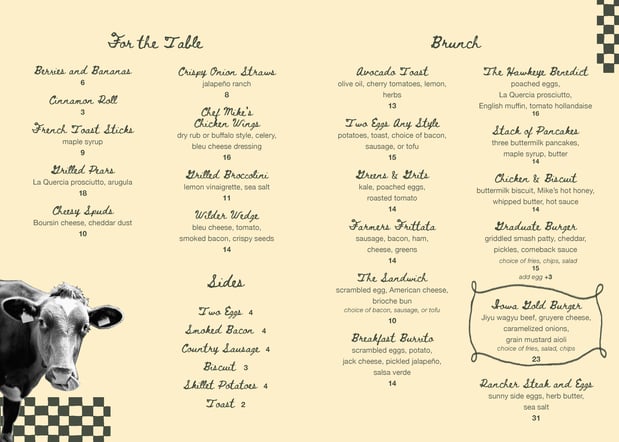 For the Table
Berries and Bananas
6
Cinnamon Roll
3
French Toast Sticks
maple syrup
9
Grilled Pears
La Quercia prosciutto, arugula
18
Cheesy Spuds
Boursin cheese, cheddar dust
10
Crispy Onion Straws
jalapeño ranch
8
Chef Mike's
Chicken Wings
dry rub or buffalo style, celery,
bleu cheese dressing
16
Grilled Broccolini
lemon vinaigrette, sea salt
11
Wilder Wedge
bleu cheese, tomato,
smoked bacon, crispy seeds
14
Sides
Two Eggs 4
Smoked Bacon 4
Country Sausage 4
Biscuit 3
Skillet Potatoes 4
Toast 2
Brunch
Avocado Toast
olive oil, cherry tomatoes, lemon,
herbs
13
Two Eggs Any Style
potatoes, toast, choice of bacon,
sausage, or tofu
15
Greens & Grits
kale, poached eggs,
roasted tomato
14
Farmers Frittata
sausage, bacon, ham,
cheese, greens
14
The Sandwich
scrambled egg, American cheese,
brioche bun
choice of bacon, sausage, or tofu
10
Breakfast Burrito
scrambled eggs, potato,
jack cheese, pickled jalapeño,
salsa verde
14
The Hawkeye Benedict
poached eggs,
La Quercia prosciutto,
English muffin, tomato hollandaise
16
Stack of Pancakes
three buttermilk pancakes,
maple syrup, butter
14
Chicken & Biscuit
buttermilk biscuit, Mike's hot honey,
whipped butter, hot sauce
14
Graduate Burger
griddled smash patty, cheddar,
pickles, comeback sauce
choice of fries, chips, salad
15
add egg +3
Iowa Gold Burger
Jiyu wagyu beef, gruyere cheese,
caramelized onions,
grain mustard aioli
choice of fries, salad, chips
23
Rancher Steak and Eggs
sunny side eggs, herb butter,
sea salt
31